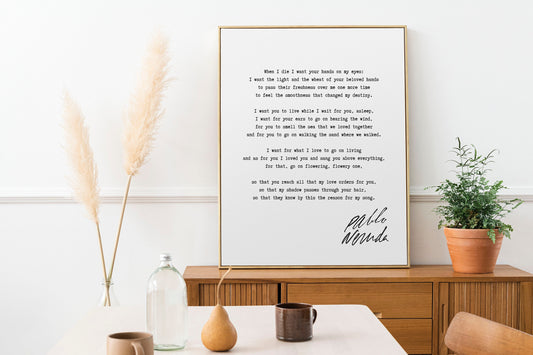 When I die I want your hands on my eyes:
I want the light and the wheat of your beloved hands
to pass their freshness over me one more time
to feel the smoothness that changed my destiny.
I want you to live while I wait for you, asleep,
I want for your ears to go on hearing the wind,
for you to smell the sea that we loved together
and for you to go on walking the sand where we walked.
I want for what I love to go on living
and as for you I loved you and sang you above everything,
for that, go on flowering, flowery one,
so that you reach all that my love orders for you,
so that my shadow passes through your hair,
so that they know by this the reason for my song.
Pablo
Neruda